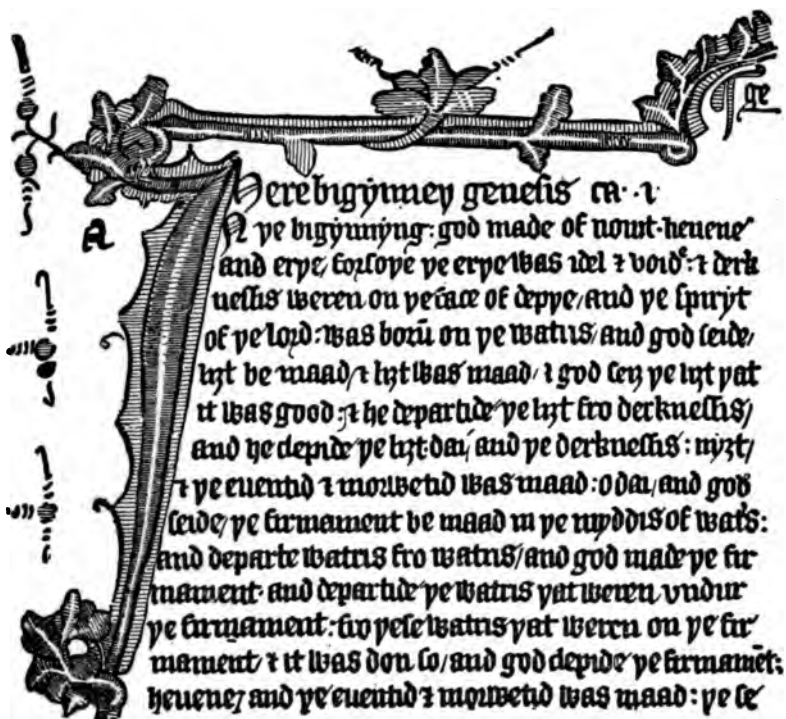 ge
Here bigynney genesis ca. .i
A
N ye bigynnyng: god made of nouut. heuene
and erye, forsoye ye erye was idel ⁊ voide: ⁊ derk
nessis weren on ye face of depye, and ye spiryt
of ye lord: was borū on ye watris, and god seide,
liȝt be maad, ⁊ liȝt was maad, ⁊ god seiȝ ye liȝt yat
it was good: ⁊ he departide ye liȝt fro derknessis,
and he clepide ye liȝt. dai, and ye derknessis: nyȝt,
⁊ ye euentid ⁊ morwetid was maad: o dai, and god
seide, ye firmament be maad in ye myddis of watris:
and departe watris fro watris, and god made ye fir
mament. and departide ye watris yat weren vndur
ye firmament: fro yese watris yat weren on ye fir
mament, ⁊ it was don so, and god clepide ye firmamēt:
heuene, and ye euentid ⁊ morwetid was maad: ye se